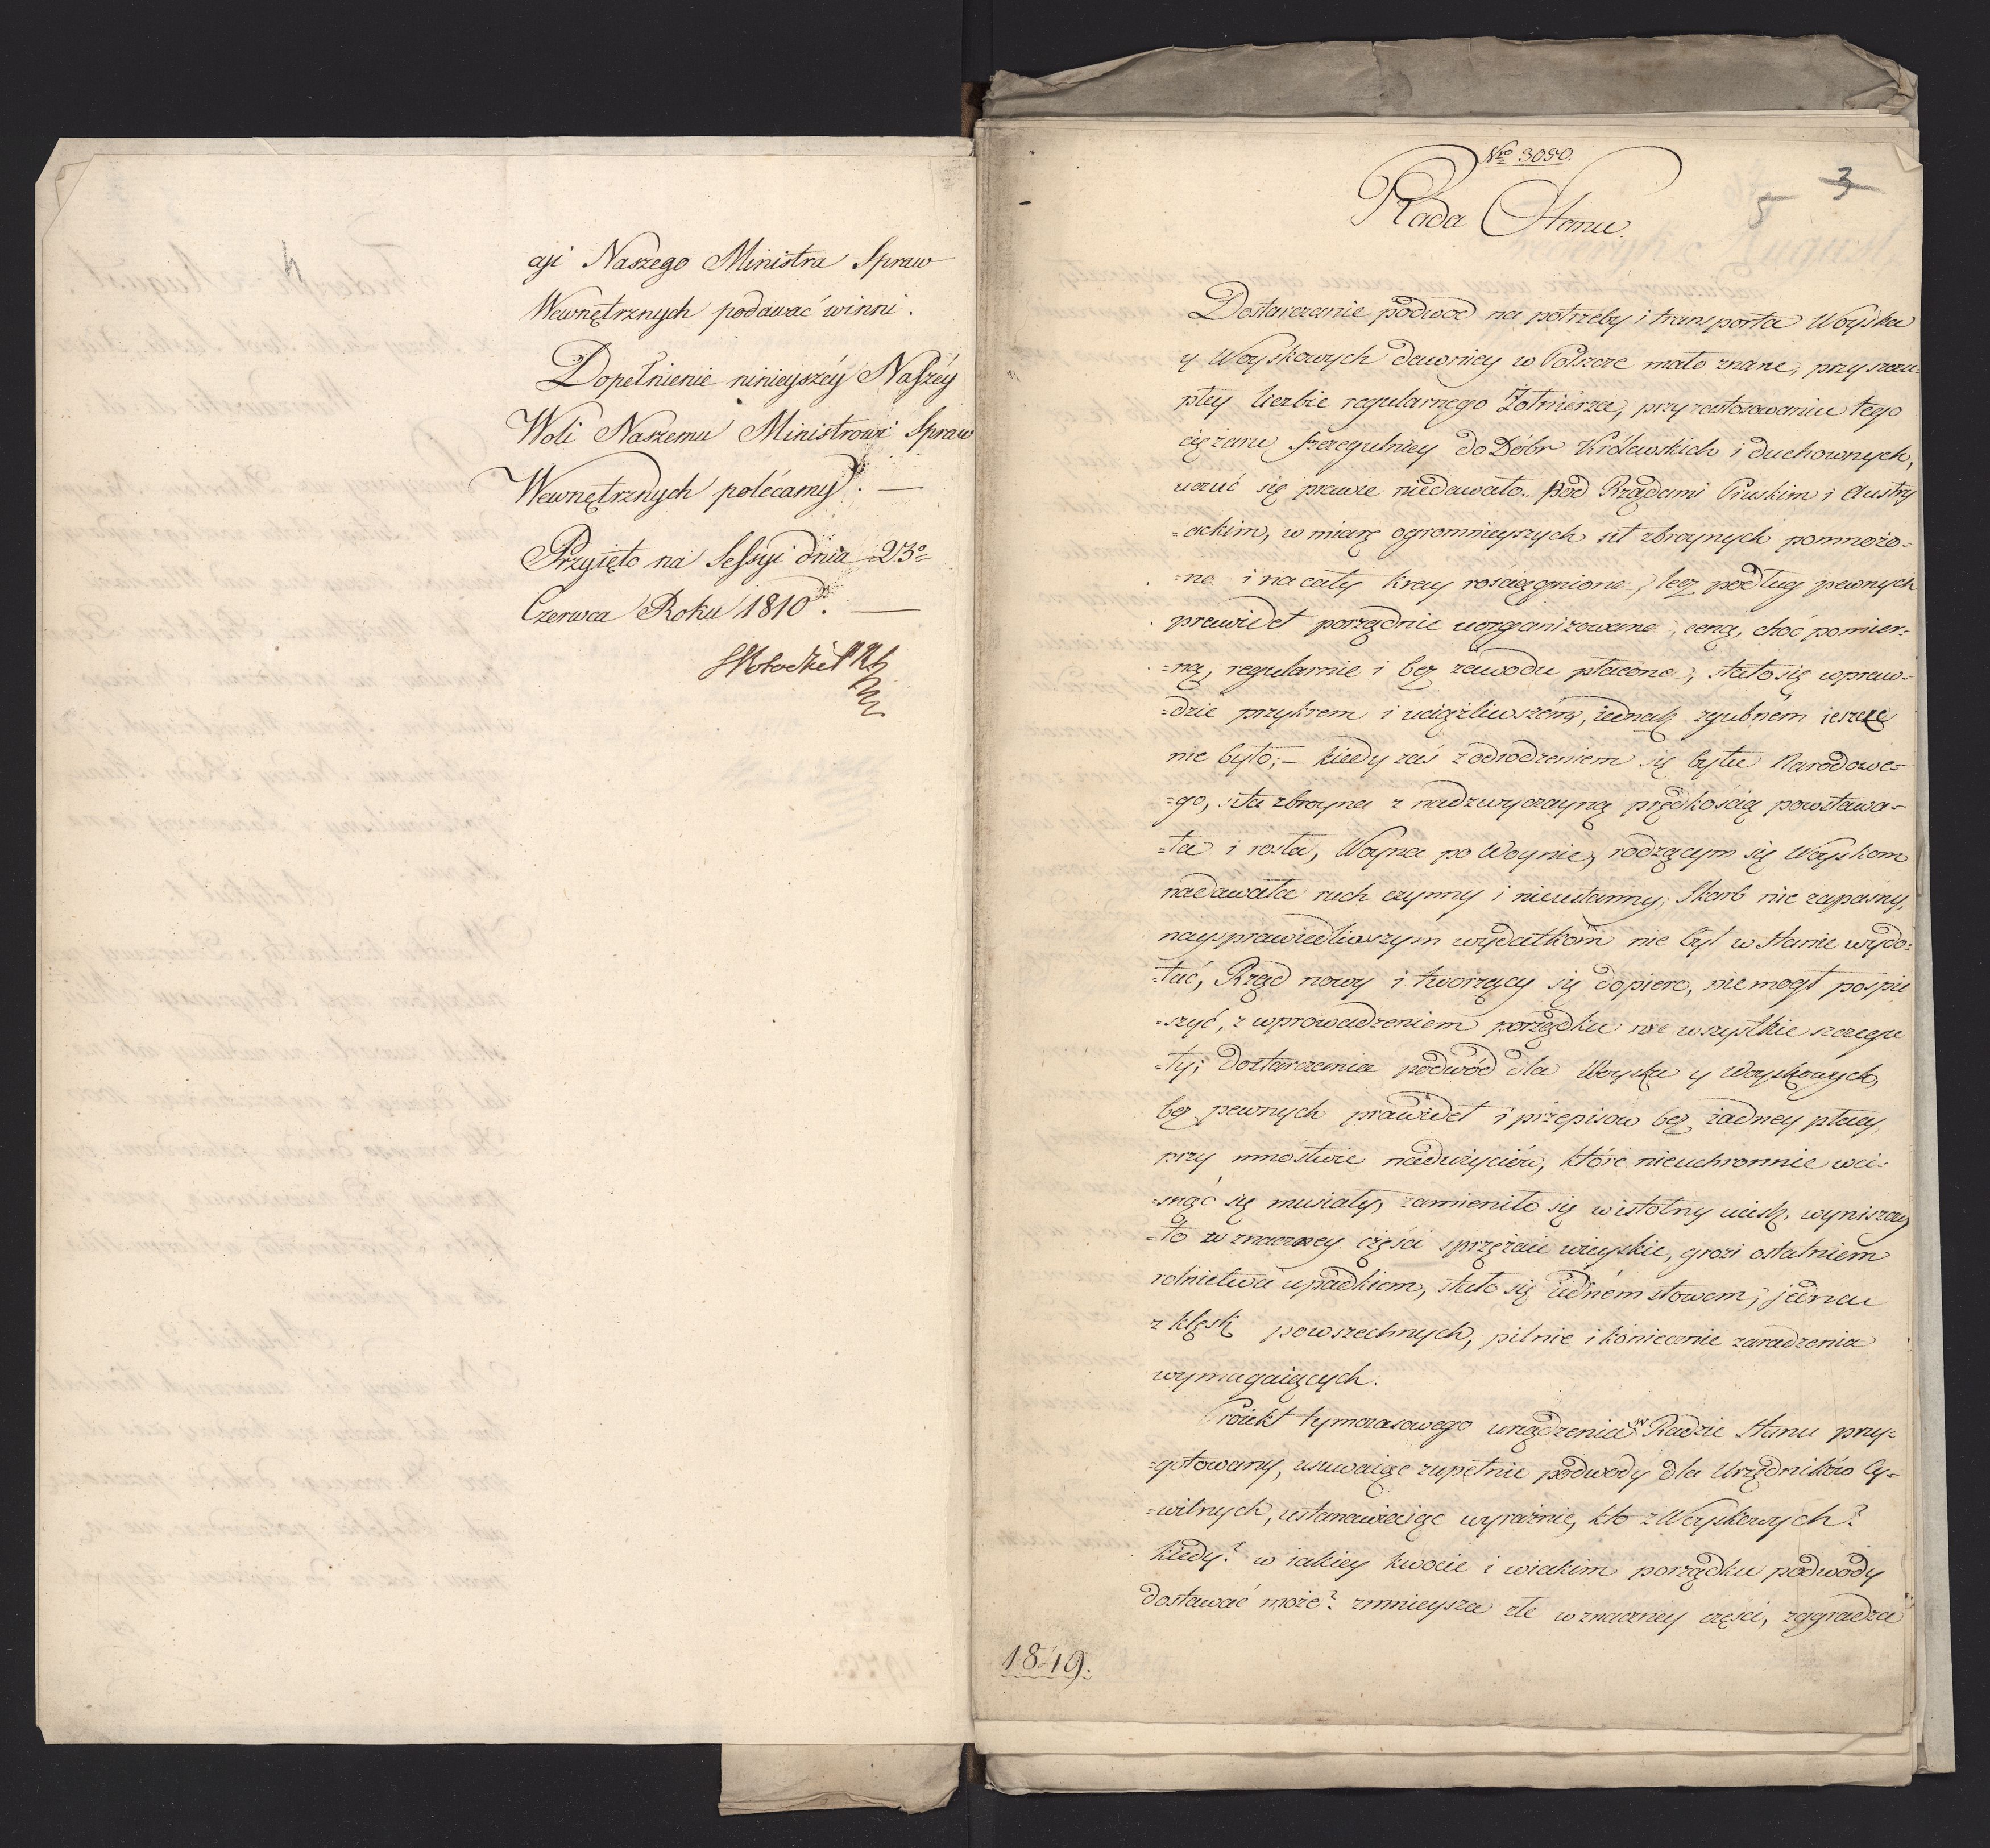 4
cyi Naszego Ministra Spraw
Wewnętrznych podawać winni.
Dopełnienie ninieyszéy Naszéy
Woli Naszemu Ministrowi Spraw
Wewnętrznych polécamy. —
Przyięto na Sessyi dnia 23º
Czerwca Roku 1810. —
Nro 3050.
3
5
Rada Stanu.
Dostarczanie podwod na potrzeby i transporta Woyska
y Woyskowych dawniey w Polszcze mało znane, przy szczu-
płey liczbie regularnego Żołnierza, przy zastosowaniu tego
ciężaru szczegulniey do Dóbr Królewskich i duchownych,
uczuć się prawie niedawało. Pod Rządami Pruskim i Austry
=ackim, w miarę ogromnieyszych sił zbroynych pomnożo=
=ne i na cały kray rosciągnione, lecz podług pewnych
prawideł porządnie uorganizowane, ceną, choć pomier=
=ną, regularnie i bez zawodu płacone, stało się wpraw=
=dzie przykrem i uciążliwszém, iednak zgubnem ieszcze
nie było; — kiedy zaś z odrodzeniem się bytu Narodowe=
=go, siła zbroyna z nadzwyczayną prędkością powstawa=
=ła i rosła, Woyna po Woynie, rodzącym się Woyskom
nadawała ruch czynny i nieustanny, Skarb nie zapasny,
naysprawiedliwszym wydatkom nie był w stanie wydo=
=łać, Rząd nowy i tworzący się dopiero, nie mogł pospie
=szyć, z wprowadzeniem porządku we wszystkie szczegu
=ły; dostarczenia podwód dla Woyska y Woyskowych,
bez pewnych prawideł i przepisow bez żadney płacy,
przy mnostwie nadużyciów, które nieuchronnie wci=
=snąć się musiały, zamieniło się w istotny ucisk, wyniszczy
=ło w znaczney części sprzężaie wieyskie, grozi ostatniem
rolnictwa upadkiem, stało się iedném słowem, jedna
z klęsk powszechnych, pilnie i koniecznie zaradzenia
wymagaiących.
Proiekt tymczasowego urządzenia w Radzie Stanu przy=
=gotowany, usuwaiąc zupełnie podwody dla Urzędników Cy=
=wilnych, ustanawiaiąc wyraźnie, kto z Woyskowych?
kiedy? w iakiey kwocie i w iakim porządku podwody
dostawać może? zmnieysza złe w znaczney części, zagradza
1849.